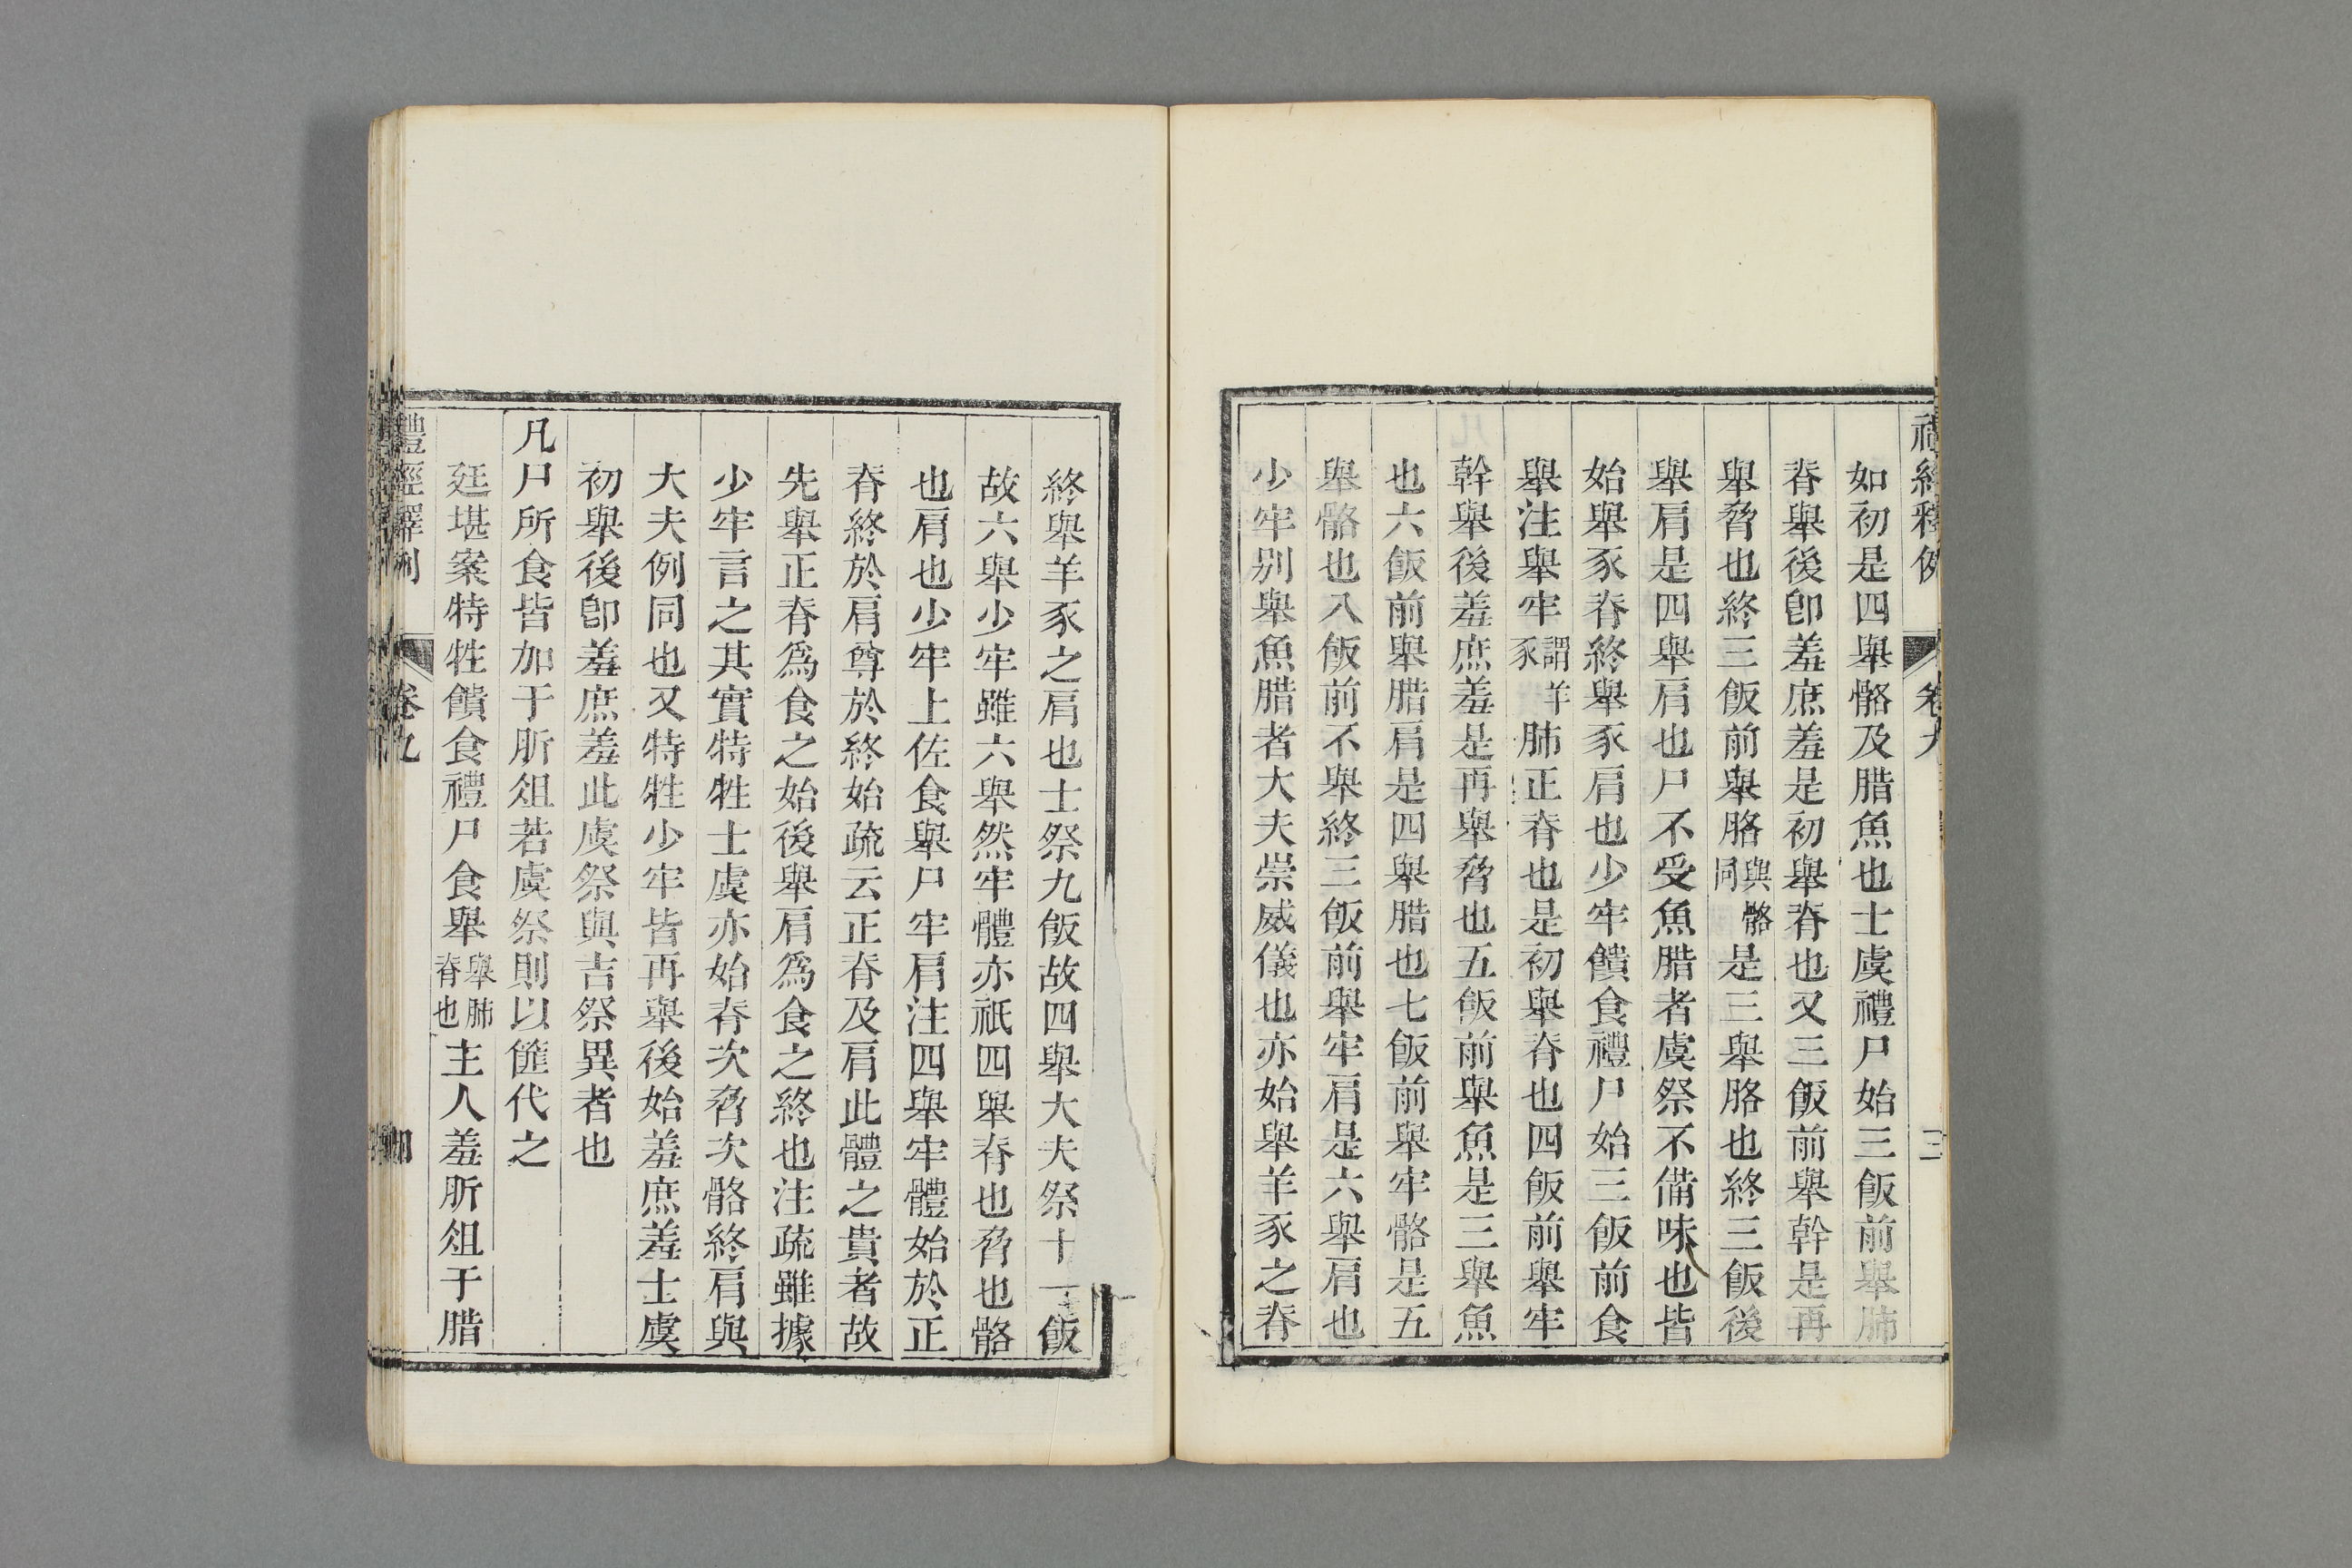 禮經釋例 卷九 三
如初是四舉骼及腊魚也士虞禮尸始三飯前舉肺
脊舉後卽羞庶羞是初舉脊也又三飯前舉幹是再
舉脅也終三飯前舉胳與骼同是三舉胳也終三飯後
舉肩是四舉肩也尸不受魚腊者虞祭不備味也皆
始舉豕脊終舉豕肩也少牢饋食禮尸始三飯前食
舉注舉牢謂羊豕肺正脊也是初舉脊也四飯前舉牢
幹舉後羞庶羞是再舉脅也五飯前舉魚是三舉魚
也六飯前舉腊肩是四舉腊也七飯前舉牢骼是五
舉骼也八飯前不舉終三飯前舉牢肩是六舉肩也
少牢别舉魚腊者大夫崇威儀也亦始舉羊豕之脊
終舉羊豕之肩也士祭九飯故四舉大夫祭十一飯
故六舉少牢雖六舉然牢體亦祇四舉脊也脅也骼
也肩也少牢上佐食舉尸牢肩注四舉牢體始於正
脊終於肩尊於終始疏云正脊及肩此體之貴者故
先舉正脊爲食之始後舉肩爲食之終也注疏雖據
少牢言之其實特牲士虞亦始脊次脅次骼終肩與
大夫例同也又特牲少牢皆再舉後始羞庶羞士虞
初舉後卽羞庶羞此虞祭與吉祭異者也
凡尸所食皆加于肵俎若虞祭則以篚代之
廷堪案特牲饋食禮尸食舉舉肺脊也主人羞肵俎于腊
禮經釋例 卷九 四